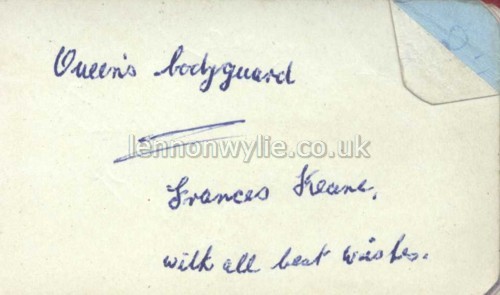 Queen's bodyguard
lennonwylie.co.uk
Frances Keane,
with all best wishes.